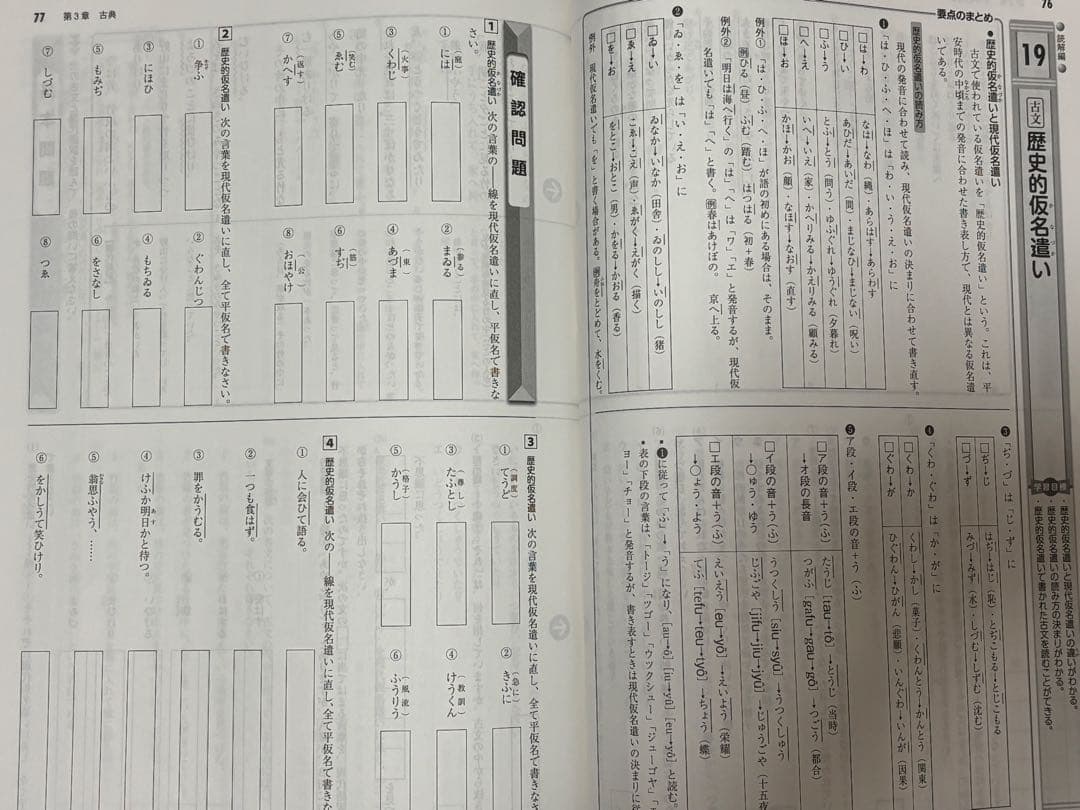 76
読解編
19
〔古文〕歴史的仮名遣い
学習目標
・歴史的仮名遣いと現代仮名遣いの違いがわかる。
・歴史的仮名遣いの読み方の決まりがわかる。
・歴史的仮名遣いで書かれた古文を読むことができる。
要点のまとめ
●歴史的仮名遣いと現代仮名遣い
古文で使われている仮名遣いを「歴史的仮名遣い」という。これは、平
安時代の中頃までの発音に合わせた書き表し方で、現代とは異なる仮名遣
いである。
歴史的仮名遣いの読み方
現代の発音に合わせて読み、現代仮名遣いの決まりに合わせて書き直す。
❶「は・ひ・ふ・へ・ほ」は「わ・い・う・え・お」に
□は→わ なは→なわ（縄）・あらはす→あらわす
□ひ→い あひだ→あいだ（間）・まじなひ→まじない（呪い）
□ふ→う とふ→とう（問う）・ゆふぐれ→ゆうぐれ（夕暮れ）
□へ→え いへ→いえ（家）・かへりみる→かえりみる（顧みる）
□ほ→お かほ→かお（顔）・なほす→なおす（直す）
例外①「は・ひ・ふ・へ・ほ」が語の初めにある場合は、そのまま。
例 ひる（昼） ふむ（踏む） はつはる（初＋春）
例外②「明日は海へ行く」の「は」「へ」は「ワ」「エ」と発音するが、現代仮
名遣いでも「は」「へ」と書く。例 春はあけぼの。 京へ上る。
❷「ゐ・ゑ・を」は「い・え・お」に
□ゐ→い ゐなか→いなか（田舎）・ゐのしし→いのしし（猪）
□ゑ→え こゑ→こえ（声）・ゑがく→えがく（描く）
□を→お をとこ→おとこ（男）・かをる→かおる（香る）
例外 現代仮名遣いでも「を」と書く場合がある。例 舟をとどめて、水をくむ。
❸「ぢ・づ」は「じ・ず」に
□ぢ→じ はぢ→はじ（恥）・とぢこもる→とじこもる
□づ→ず みづ→みず（水）・しづむ→しずむ（沈む）
❹「くわ・ぐわ」は「か・が」に
□くわ→か くわし→かし（菓子）・くわんとう→かんとう（関東）
□ぐわ→が ひぐわん→ひがん（悲願）・いんぐわ→いんが（因果）
❺ア段・イ段・エ段の音＋う（ふ）
□ア段の音＋う（ふ）→オ段の長音 たうじ［tau→tô］→とうじ（当時） つがふ［gafu→gau→gô］→つごう（都合）
□イ段の音＋う（ふ）→◯ゅう・ゆう うつくしう［siu→syû］→うつくしゅう じふごや［jifu→jiu→jyû］→じゅうごや（十五夜
□エ段の音＋う（ふ）→◯ょう・よう えいえう［eu→yô］→えいよう（栄耀） てふ［tefu→teu→tyô］→ちょう（蝶）
・❶に従って「ふ」→「う」になり、［au→ô］［iu→yû］［eu→yô］と読む。
・表の下段の言葉は、「トージ」「ツゴー」「ウツクシュー」「ジューゴヤ」
ヨー」「チョー」と発音するが、書き表すときは現代仮名遣いの決まりに
77 第3章 古典
確認問題
1 歴史的仮名遣い 次の言葉の――線を現代仮名遣いに直し、平仮名で書きな
さい。
①には（庭）
②まゐる（参る）
③くわじ（火事）
④あづま（東）
⑤ゑむ（笑む）
⑥すぢ（筋）
⑦かへす（返す）
⑧おほやけ（公）
2 歴史的仮名遣い 次の言葉を現代仮名遣いに直し、全て平仮名で書きなさい。
①争ふ
②ぐわんじつ
③にほひ
④もちゐる
⑤もみぢ
⑥をさなし
⑦しづむ
⑧つゑ
3 歴史的仮名遣い 次の言葉を現代仮名遣いに直し、全て平仮名で書きなさ
①てうど（調度）
②きふに（急に）
③たふとし（尊し）
④けうくん（教訓）
⑤かうし（格子）
⑥ふうりう（風流）
4 歴史的仮名遣い 次の――線を現代仮名遣いに直し、全て平仮名で書きなさ
①人に会ひて語る。
②一つも食はず。
③罪をかうむる。
④けふか明日かと待つ。
⑤翁思ふやう、……
⑥をかしうて笑ひけり。